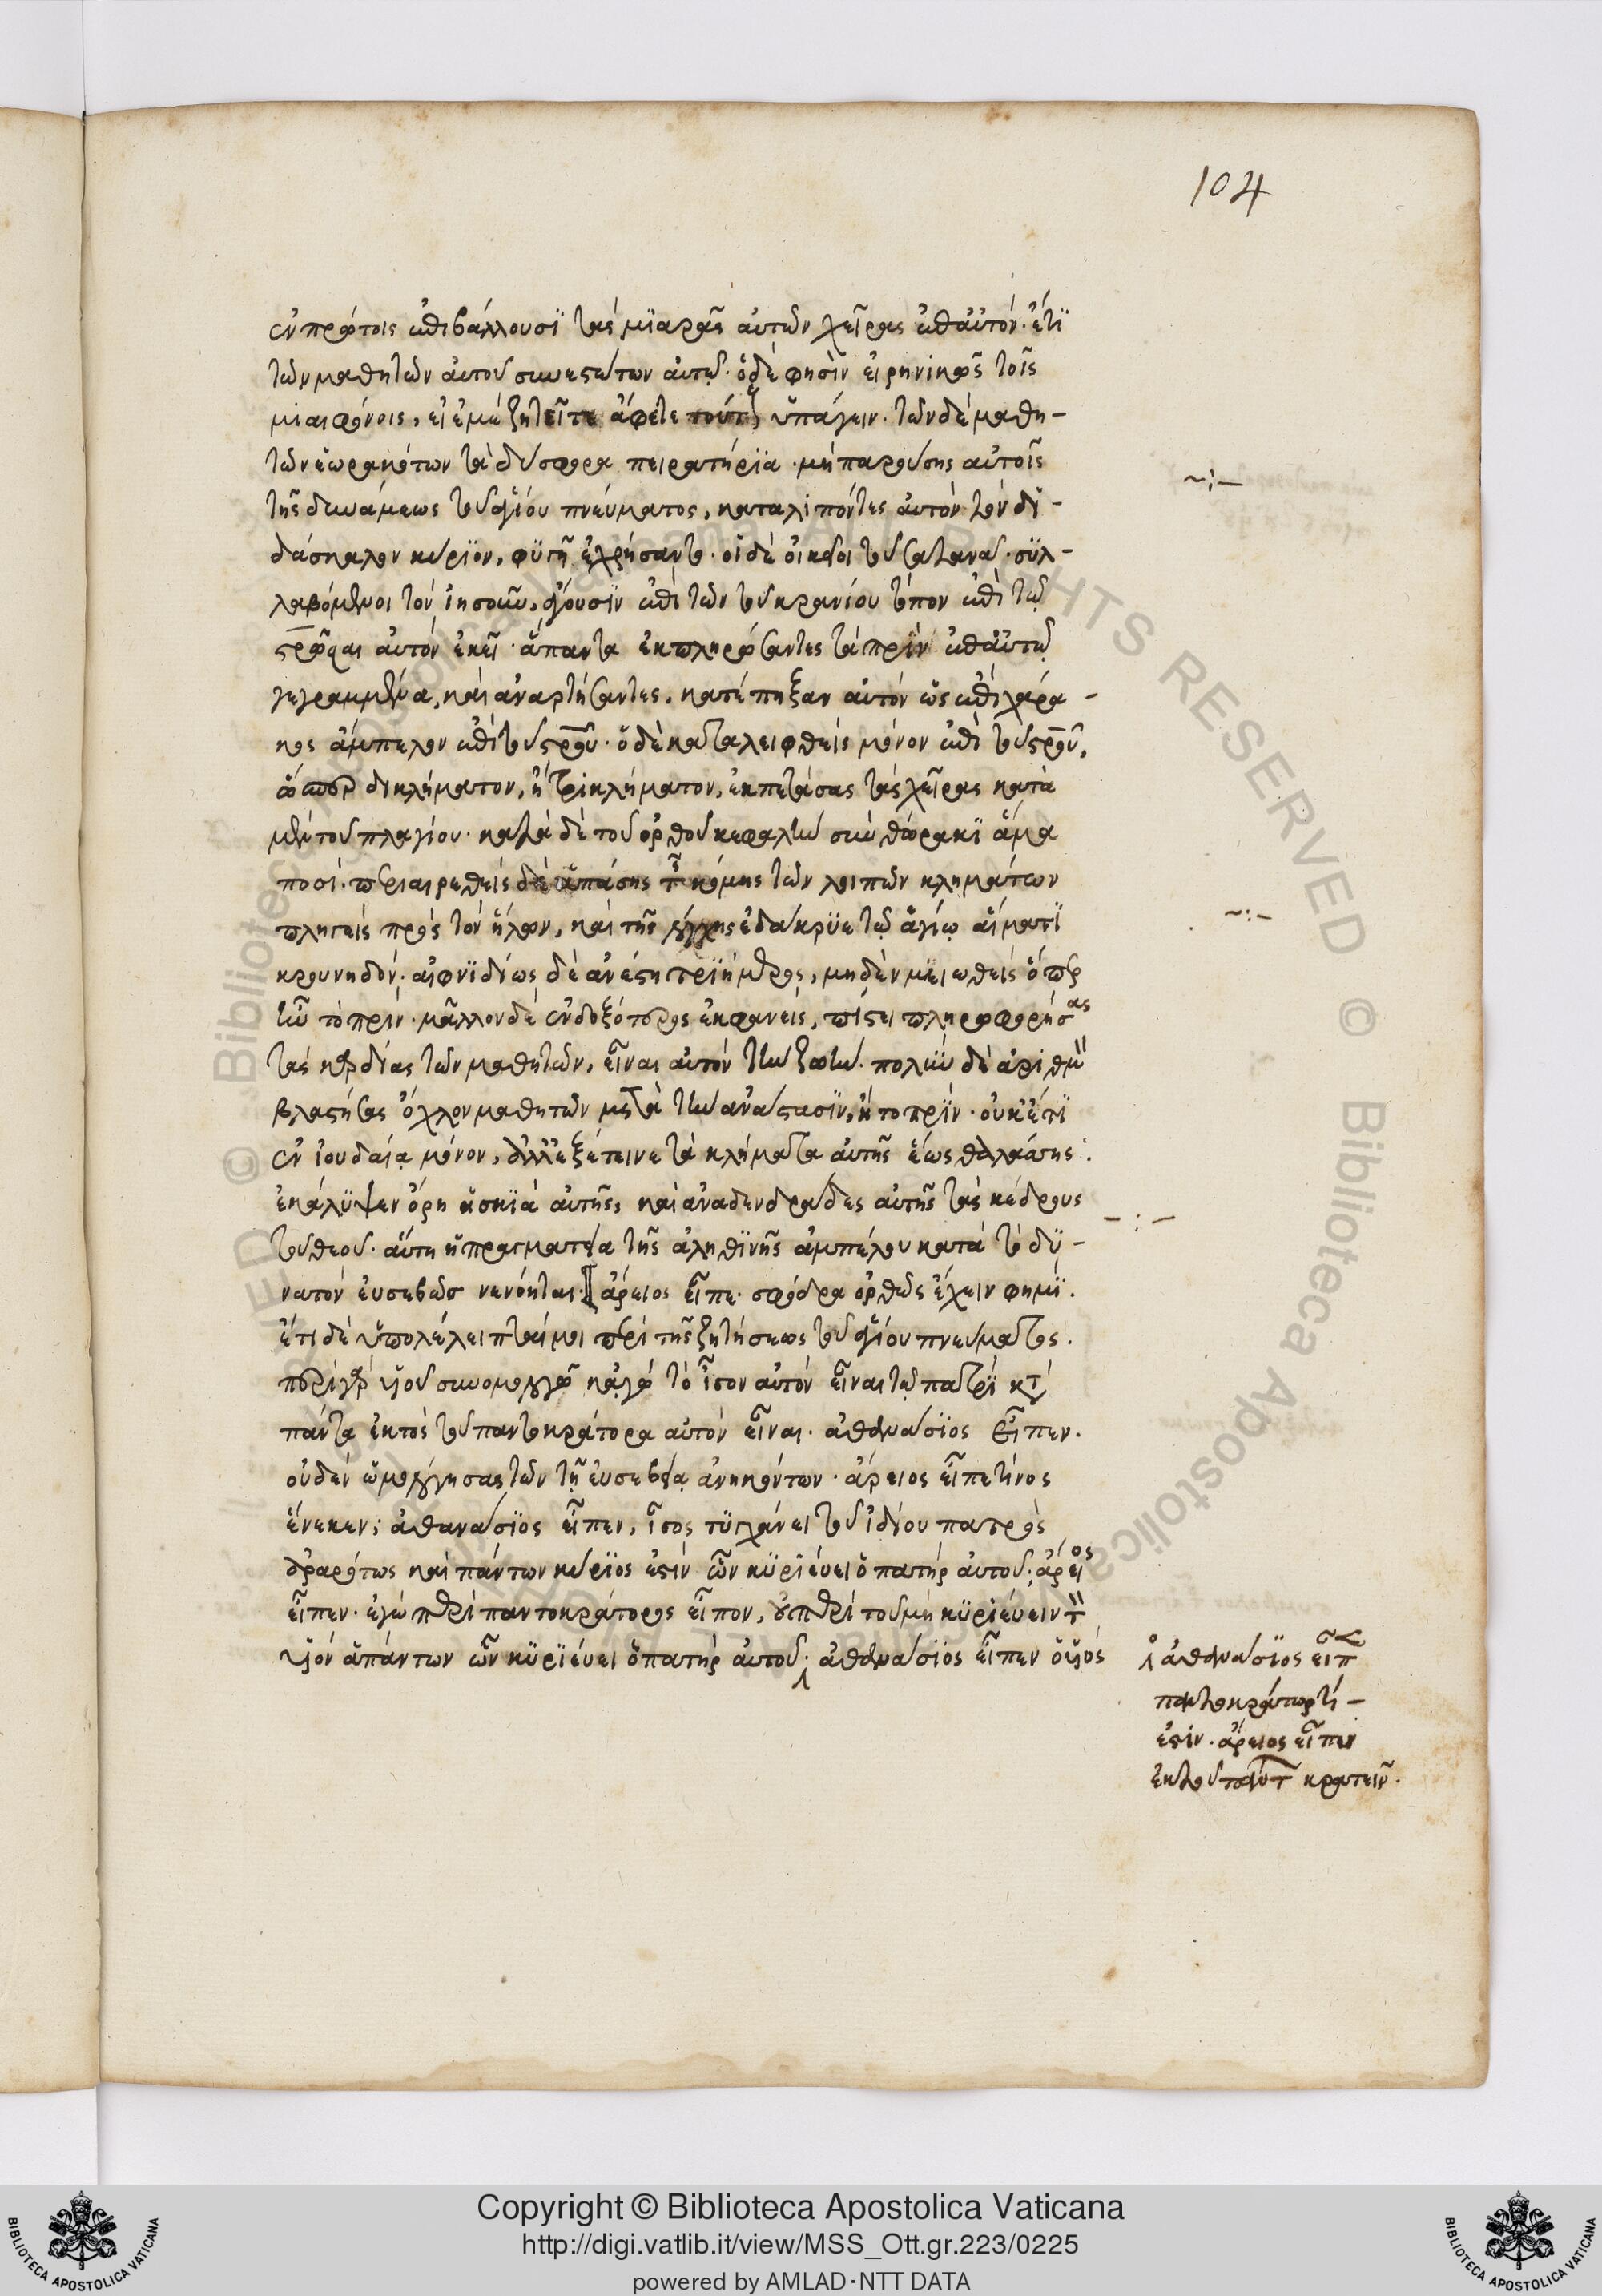 104
ἐν πρώτοις ἐπιβάλλουσϊ τὰς μϊαρὰς αὐτῶν χεῖρας ἐπ' αὐτόν· ἔτϊ
τῶν μαθητῶν αὐτοῦ συνεστώτων αὐτῷ· ὁ δὲ φησὶν εἰρηνικῶς τοῖς
μιαιφόνοις, εἰ ἐμὲ ζητεῖτε ἄφετε τούτους ὑπάγειν· τῶν δὲ μαθη-
τῶν ἑωρακότων τὰ δύσφορα πειρατήρϊα· μὴ παρούσης αὐτοῖς
τῆς δυνάμεως τοῦ ἁγίου πνεύματος, καταλιπόντες αὐτὸν τὸν δϊ-
δάσκαλον κύρϊον, φϋγῇ ἐχρήσαντο· οἱ δὲ οἰκεῖοι τοῦ σατανᾶ· σϋλ-
λαβόμενοι τὸν ἰησοῦν, ἄγουσϊν ἐπὶ τὸν τοῦ κρανίου τόπον ἐπὶ τῷ
σταυρῶσαι αὐτὸν ἐκεῖ· ἅπαντα ἐκπληρώσαντες τὰ πρὶν ἐπ' αὐτῷ
γεγραμμένα, καὶ ἀναρτήσαντες, κατέπηξαν αὐτὸν ὡς ἐπὶ χάρα-
κος ἄμπελον ἐπὶ τοῦ σταυροῦ· ὁ δὲ καταλειφθεὶς μόνον ἐπὶ τοῦ σταυροῦ,
ὥσπερ δικλήματον, ἢ τρικλήματον, ἐκπετάσας τὰς χεῖρας κατὰ
μὲν τοῦ πλαγίου· κατὰ δὲ τοῦ ὀρθοῦ κεφαλὴν σὺν θώρακϊ ἅμα
ποσί· περιαιρεθεὶς δὲ ἁπάσης τῆς κόμης τῶν λοιπῶν κλημάτων
πληγεὶς πρὸς τὸν ἧλον, καὶ τῆς λόγχης ἐδάκρϋε τῷ ἁγίῳ αἵματϊ
κρουνηδόν· αἰφνϊδίως δὲ ἀνέστη τρϊήμερος, μηδὲν μϊειωθεὶς ὅπερ
ἦν τὸ πρίν· μᾶλλον δὲ ἐνδοξότερος ἐκφανεὶς, πίστει πληροφορήσας
τὰς καρδίας τῶν μαθητῶν, εἶναι αὐτὸν τὴν ζωήν· πολὺν δὲ ἀριθμὸν
βλαστήσας ὄχλον μαθητῶν μετὰ τὴν ἀνάστασϊν, ἢ το πρϊν· οὐκέτϊ
ἐν ἰουδαίᾳ μόνον, ἀλλ' ἐξέτεινε τὰ κλήματα αὐτῆς ἕως θαλάσσης:
ἐκάλϋψεν ὄρη ἡ σκϊὰ αὐτῆς, καὶ ἀναδενδράδες αὐτῆς τὰς κέδρους
τοῦ θεοῦ· αὕτη ἡ πραγματεία τῆς ἀληθϊνῆς ἀμπέλου κατὰ τὸ δϋ-
νατὸν εὐσεβῶς νενόηται· ἄρειος εἶπε· σφόδρα ὀρθῶς ἔχειν φημϊ.
ἔτι δὲ ὑπολέλειπταί μοι περὶ τῆς ζητήσεως τοῦ ἁγίου πνεύματος.
περὶ γὰρ υἱοῦ συνομολογῶ κἀγὼ τὸ ἶσον αὐτὸν εἶναι τῷ πατρὶ κατὰ
πάντα ἐκτὸς τοῦ παντοκράτορα αὐτὸν εἶναι· ἀθανάσϊος εἶπεν.
οὐδὲν ὡμολόγησας τῶν τῇ εὐσεβείᾳ ἀνηκόντων· ἄρειος εἶπε τίνος
ἕνεκεν; ἀθανάσϊος εἶπεν, ἶσος τϋγχάνει τοῦ ἰδίου πατρὸς
ἀραρότως καὶ πάντων κύρϊος ἐστὶν ὧν κϋρϊεύει ὁ πατὴρ αὐτοῦ; ἄρειος
εἶπεν· ἐγὼ περὶ παντοκράτορος εἶπον, οὐ περὶ τοῦ μὴ κϋρϊεύειν τὸν
υἱὸν ἁπάντων ὧν κϋρϊεύει ὁ πατὴρ αὐτοῦ· ἀθανάσϊος εἶπεν ὁ υἱὸς
ἀθανάσϊος εἶπ
παντοκράτωρ τί-
ἐστϊν· ἄρειος εἶπεν
ἐκ τοῦ πάντων κρατεῖν.
Copyright © Biblioteca Apostolica Vaticana
http://digi.vatlib.it/view/MSS_Ott.gr.223/0225
powered by AMLAD·NTT DATA
BIBLIOTECA APOSTOLICA VATICANA
BIBLIOTECA APOSTOLICA VATICANA